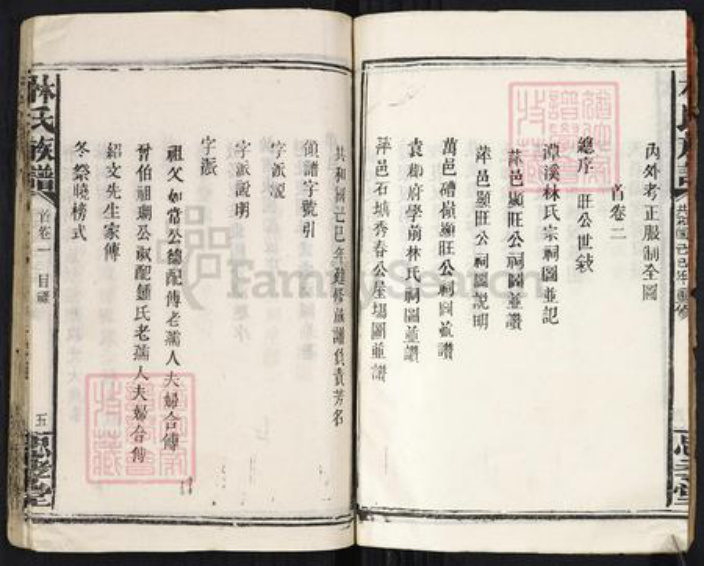 內外考正服制全圖
首卷二
總序 旺公世敘
潭溪林氏宗祠圖並記
萍邑顯旺公祠圖並讚
萍邑顯旺公祠圖說明
萬邑礄嶺顯旺公祠圖並讚
袁州府學前林氏祠圖並讚
萍邑石塘秀春公屋場圖並讚
林氏族譜
共和國己巳年重修
思孝堂
共和國己巳年續修族譜負責芳名
領譜字號引
字派說
字派說明
字派
祖父如常公德配傅老孺人夫婦合傳
晉伯祖瑚公淑配鍾氏老孺人夫婦合傳
紹文先生家傳
冬祭曉榜式
林氏族譜
首卷一
目錄
五
思孝堂
FamilySearch